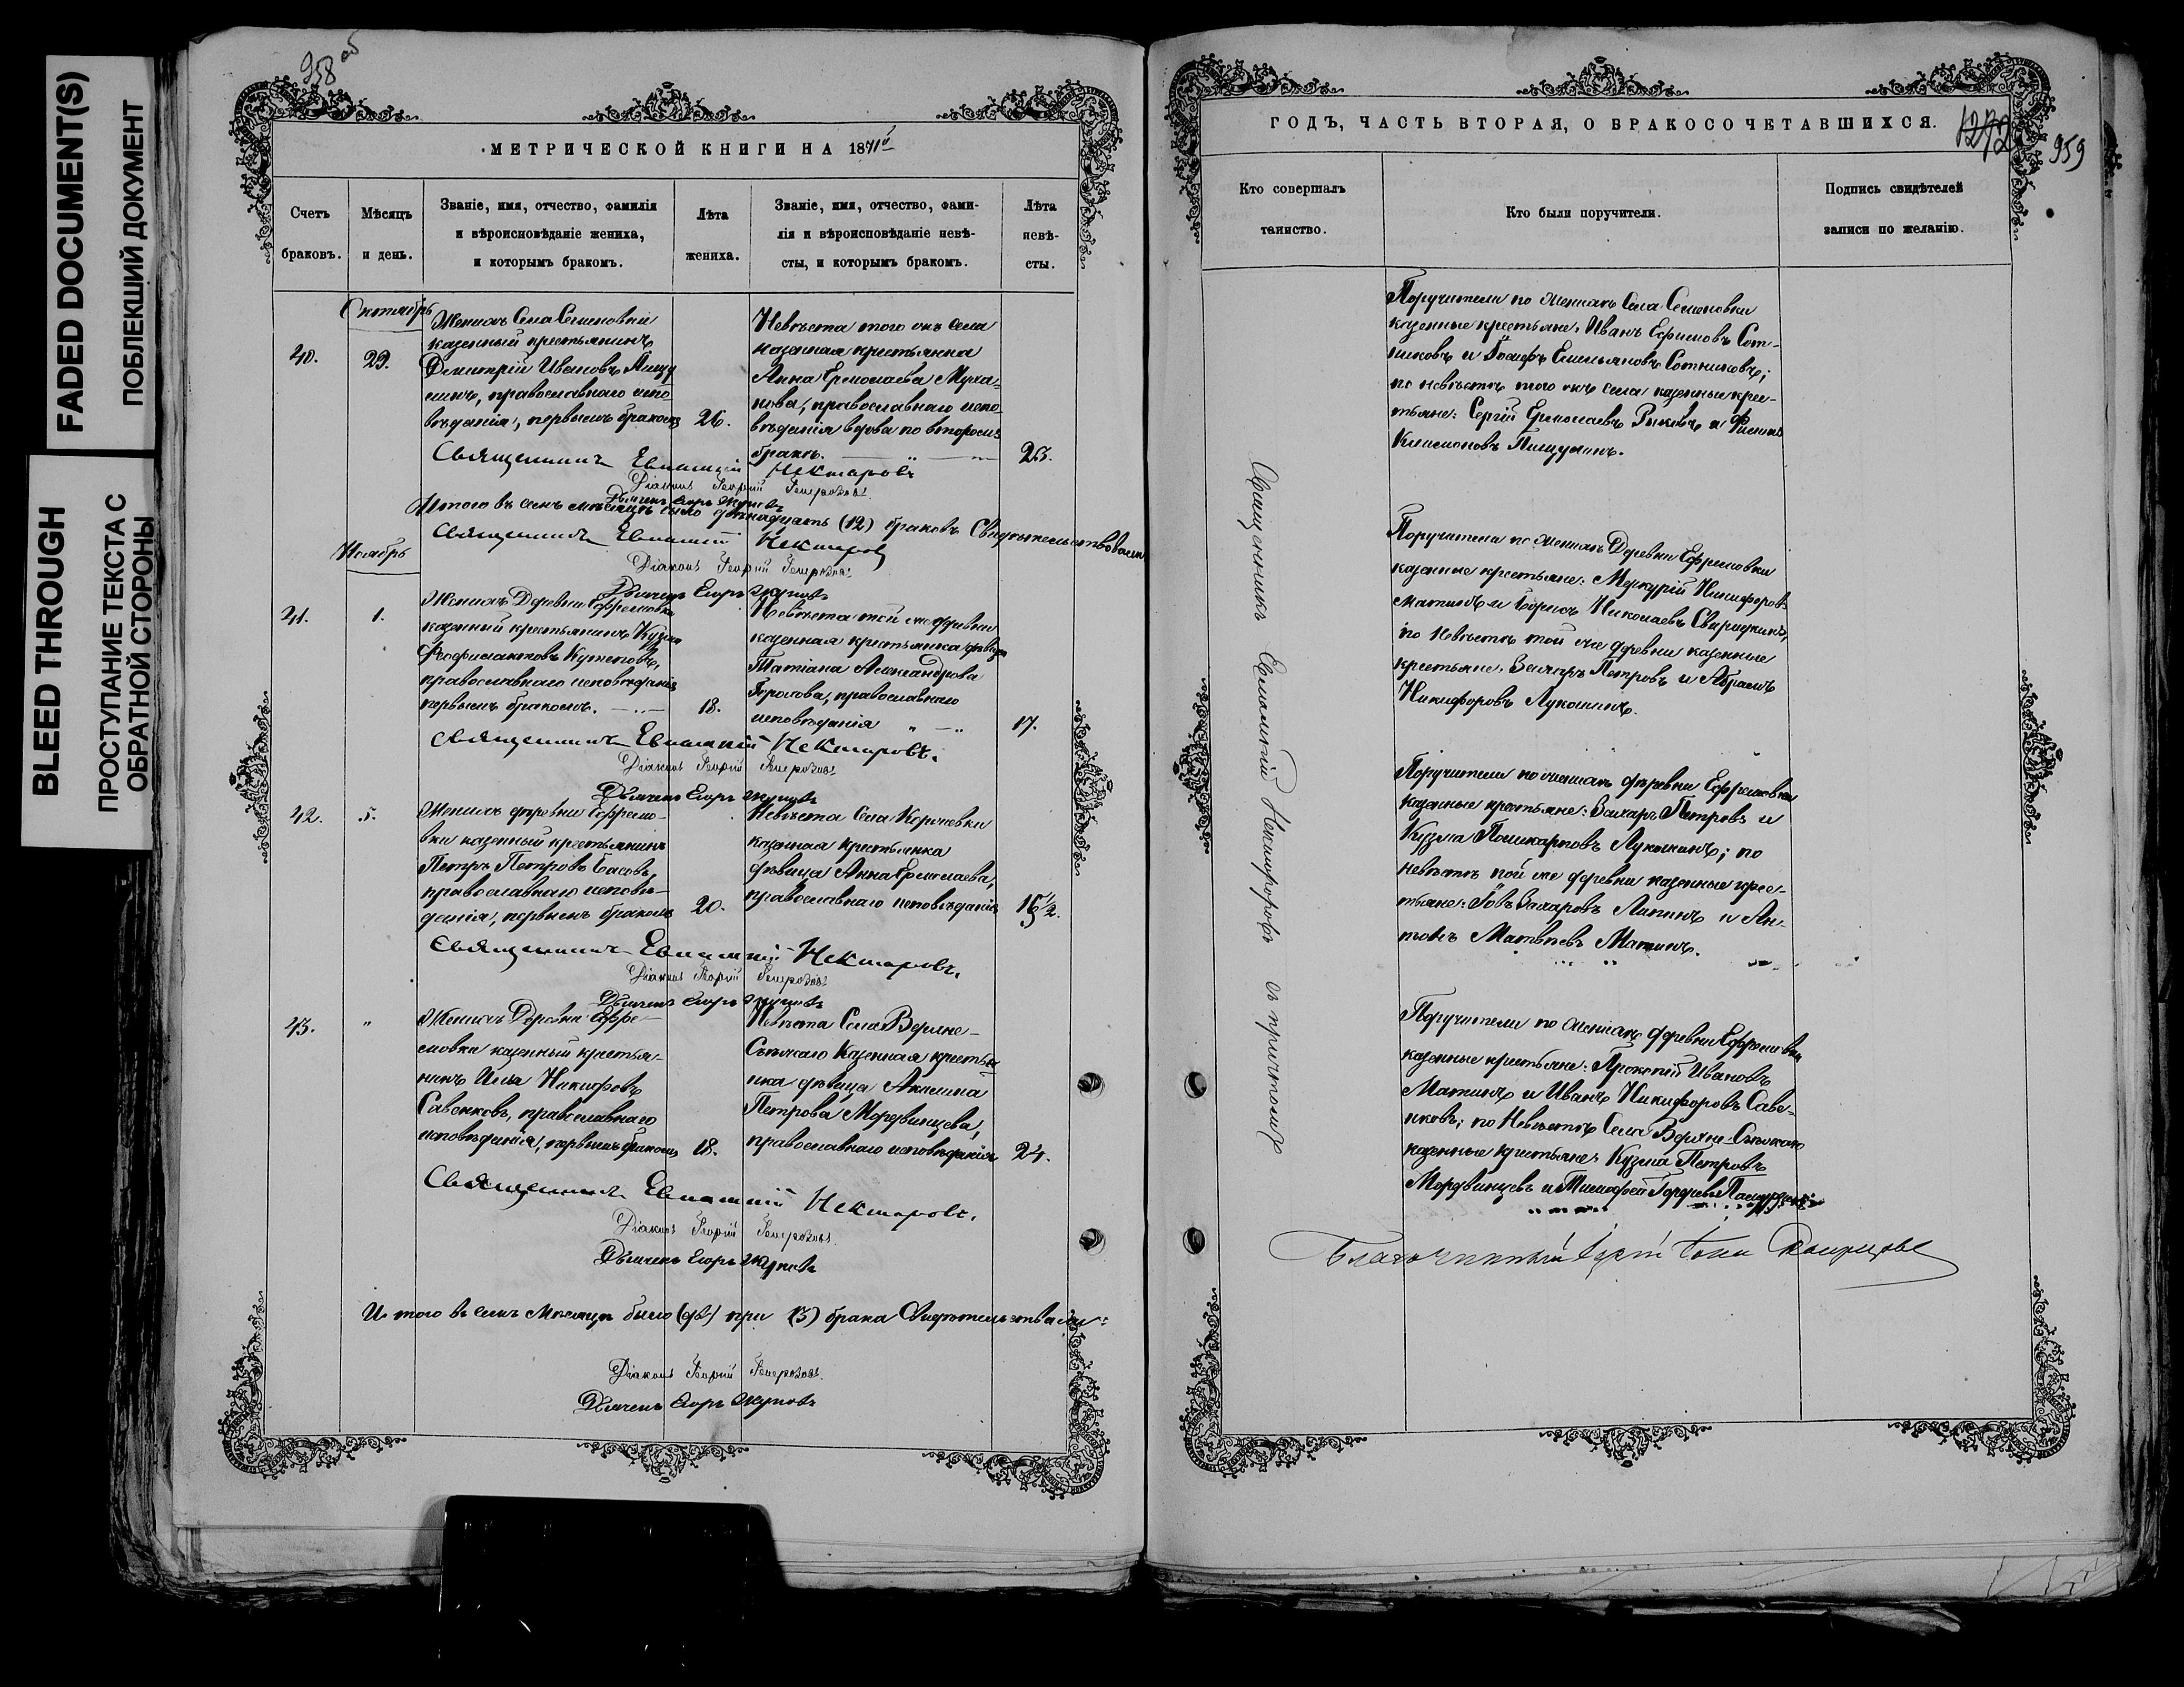 FADED DOCUMENT(S)
ПОБЛЕКШИЙ ДОКУМЕНТ
BLEED THROUGH
ПРОСТУПАНИЕ ТЕКСТА С
ОБРАТНОЙ СТОРОНЫ
958 об
МЕТРИЧЕСКОЙ КНИГИ НА 1871й
Счетъ
браковъ.
Мѣсяцъ
и день.
Званіе, имя, отчество, фамилія
и вѣроисповѣданіе жениха,
и которымъ бракомъ.
Лѣта
жениха.
Званіе, имя, отчество, фами-
лія и вѣроисповѣданіе невѣ-
сты, и которымъ бракомъ.
Лѣта
невѣ-
сты.
Октябрь
40.
29.
Женихъ Села Семеновки
казенный крестьянинъ
Димитрій Ивановъ Пищу
линъ, православнаго испо-
вѣданія, первымъ бракомъ
26.
Невѣста того жъ села
казенная крестьянка
Анна Ермолаева Муха-
нова, православнаго испо-
вѣданія вдова по второмъ
бракѣ.
25.
Священникъ Евлампій Некторовъ
Діаконъ Георгій
Дьячекъ Егоръ Жуковъ
Итого въ семъ мѣсяцѣ было двѣнадцать (12) браковъ Свидѣтельствовали
Священникъ Евлампій Некторовъ
Діаконъ Георгій
Дьячекъ Егоръ Жуковъ
Ноябрь
41.
1.
Женихъ Деревни Ефремовки
казенный крестьянинъ Кузма
Феофилактовъ Кутеповъ,
православнаго исповѣданія
первымъ бракомъ.
18.
Невѣста той же деревни
казенная крестьянка дѣвица
Татіана Александрова
православнаго
исповѣданія
17.
Священникъ Евлампій Некторовъ.
Діаконъ Георгій
Дьячекъ Егоръ Жуковъ
42.
5.
Женихъ деревни Ефремо-
вки казенный крестьянинъ
Петръ Петровъ Басовъ,
православнаго исповѣ-
данія, первымъ бракомъ
20.
Невѣста Села
казенная крестьянка
дѣвица Анна Ермолаева,
православнаго исповѣданія
16 1/2.
Священникъ Евлампій Некторовъ.
Діаконъ Георгій
Дьячекъ Егоръ Жуковъ
43.
"
Женихъ Деревни Ефре-
мовки казенный крестья-
нинъ Илья Никифоровъ
Савенковъ, православнаго
исповѣданія, первымъ бракомъ
18.
Невѣста Села Верхне-
казенная крестья-
нка дѣвица Акилина
Петрова Мордвинцева,
православнаго исповѣданія
24.
Священникъ Евлампій Некторовъ.
Діаконъ Георгій
Дьячекъ Егоръ Жуковъ
И того въ семъ Мѣсяцѣ было три (3) брака Свидѣтельствовали:
Діаконъ Георгій
Дьячекъ Егоръ Жуковъ
ГОДЪ, ЧАСТЬ ВТОРАЯ, О БРАКОСОЧЕТАВШИХСЯ.
959
Кто совершалъ
таинство.
Кто были поручители.
Подпись свидѣтелей
записи по желанію.
Священникъ Евлампій Некторовъ съ причтомъ
Поручители по женихѣ Села Семеновки
казенные крестьяне: Иванъ Ефимовъ Сот-
никовъ и Іосифъ Емельяновъ Сотниковъ;
по невѣстѣ того жъ села казенные крес-
тьяне: Сергій Ермолаевъ Рыковъ и
Пищулинъ.
Поручители по женихѣ Деревни Ефремовки
казенные крестьяне: Меркурій Никифоровъ
Матинъ и Борисъ Николаевъ
по невѣстѣ той же деревни казенные
крестьяне: Захаръ Петровъ и Абрамъ
Никифоровъ Лукашинъ.
Поручители по женихѣ деревни Ефремовки
казенные крестьяне: Захаръ Петровъ и
Кузма Поликарповъ Лукашинъ; по
невѣстѣ той же деревни казенные крес-
тьяне: Іовъ Захаровъ Липинъ и Ан-
тонъ Матвѣевъ Матинъ.
Поручители по женихѣ деревни Ефремовки
казенные крестьяне: Прокопій Ивановъ
Матинъ и Иванъ Никифоровъ Саве-
нковъ; по Невѣстѣ Села Верхне-
казенные крестьяне: Кузма Петровъ
Мордвинцевъ и Тимофей Гордѣевъ
Благочинный Іерей